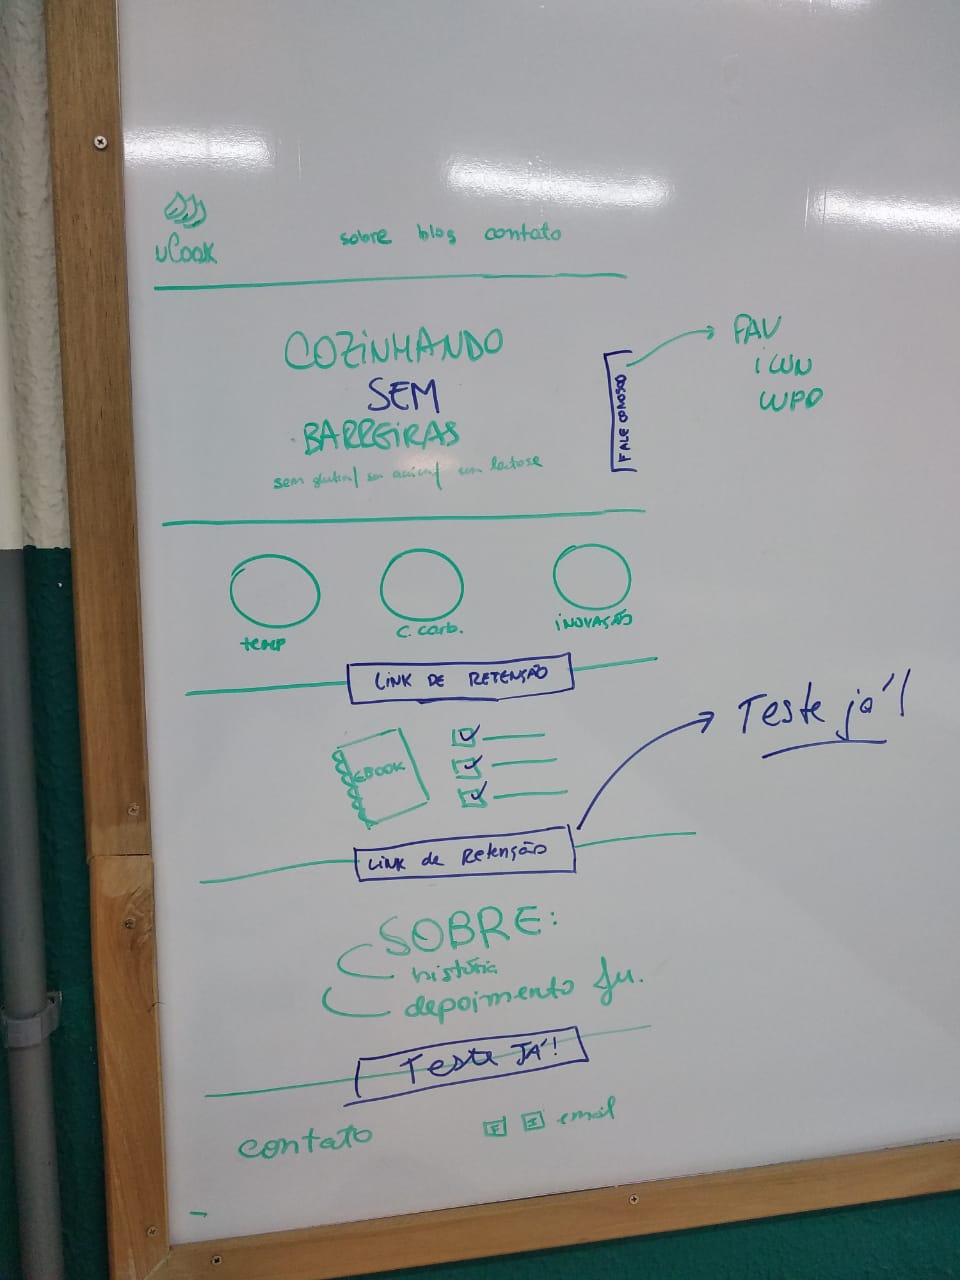 uCook
sobre blog contato
COZINHANDO
SEM
BARREIRAS
sem gluten/ sem / sem lactose
FALE CONOSCO
FAV
ICON
WPO
temp
c. carb.
INOVAÇÃO
LINK DE RETENÇÃO
EBOOK
LINK de Retenção
Teste já!
SOBRE:
história
depoimento Ju.
Teste JÁ!
contato
F I email